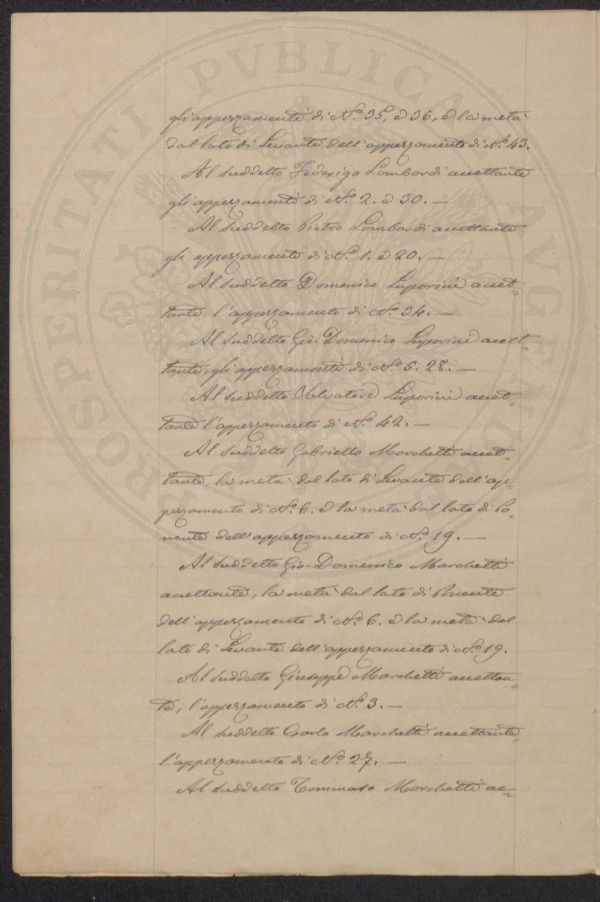 gli appezzamenti di N.° 35, e 36, e la metà
dal lato di Levante dell'appezzamento di N.° 43.
Al suddetto Federigo Lombardi accettante
gli appezzamenti di N.° 2. e 30. —
Al suddetto Pietro Lombardi accettante
gli appezzamenti di N.° 1. e 20. —
Al suddetto Domenico Luporini accet-
tante, l'appezzamento di N.° 34. —
Al suddetto Gio. Domenico Luporini accet-
tante, gli appezzamenti di N.° 5. 28. —
Al suddetto Salvatore Luporini accet-
tante l'appezzamento di N.° 42. —
Al suddetto Gabriello Marchetti accet-
tante, la metà dal lato di Levante dell'ap-
pezzamento di N.° 6. e la metà dal lato di Po-
nente dell'appezzamento di N.° 19. —
Al suddetto Gio. Domenico Marchetti
accettante, la metà dal lato di Ponente
dell'appezzamento di N.° 6. e la metà dal
lato di Levante dell'appezzamento di N.° 19.
Al suddetto Giuseppe Marchetti accettan-
te, l'appezzamento di N.° 3. —
Al suddetto Carlo Marchetti accettante,
l'appezzamento di N.° 27. —
Al suddetto Tommaso Marchetti ac-
PROSPERITATI PVBLICAE AVGENDAE